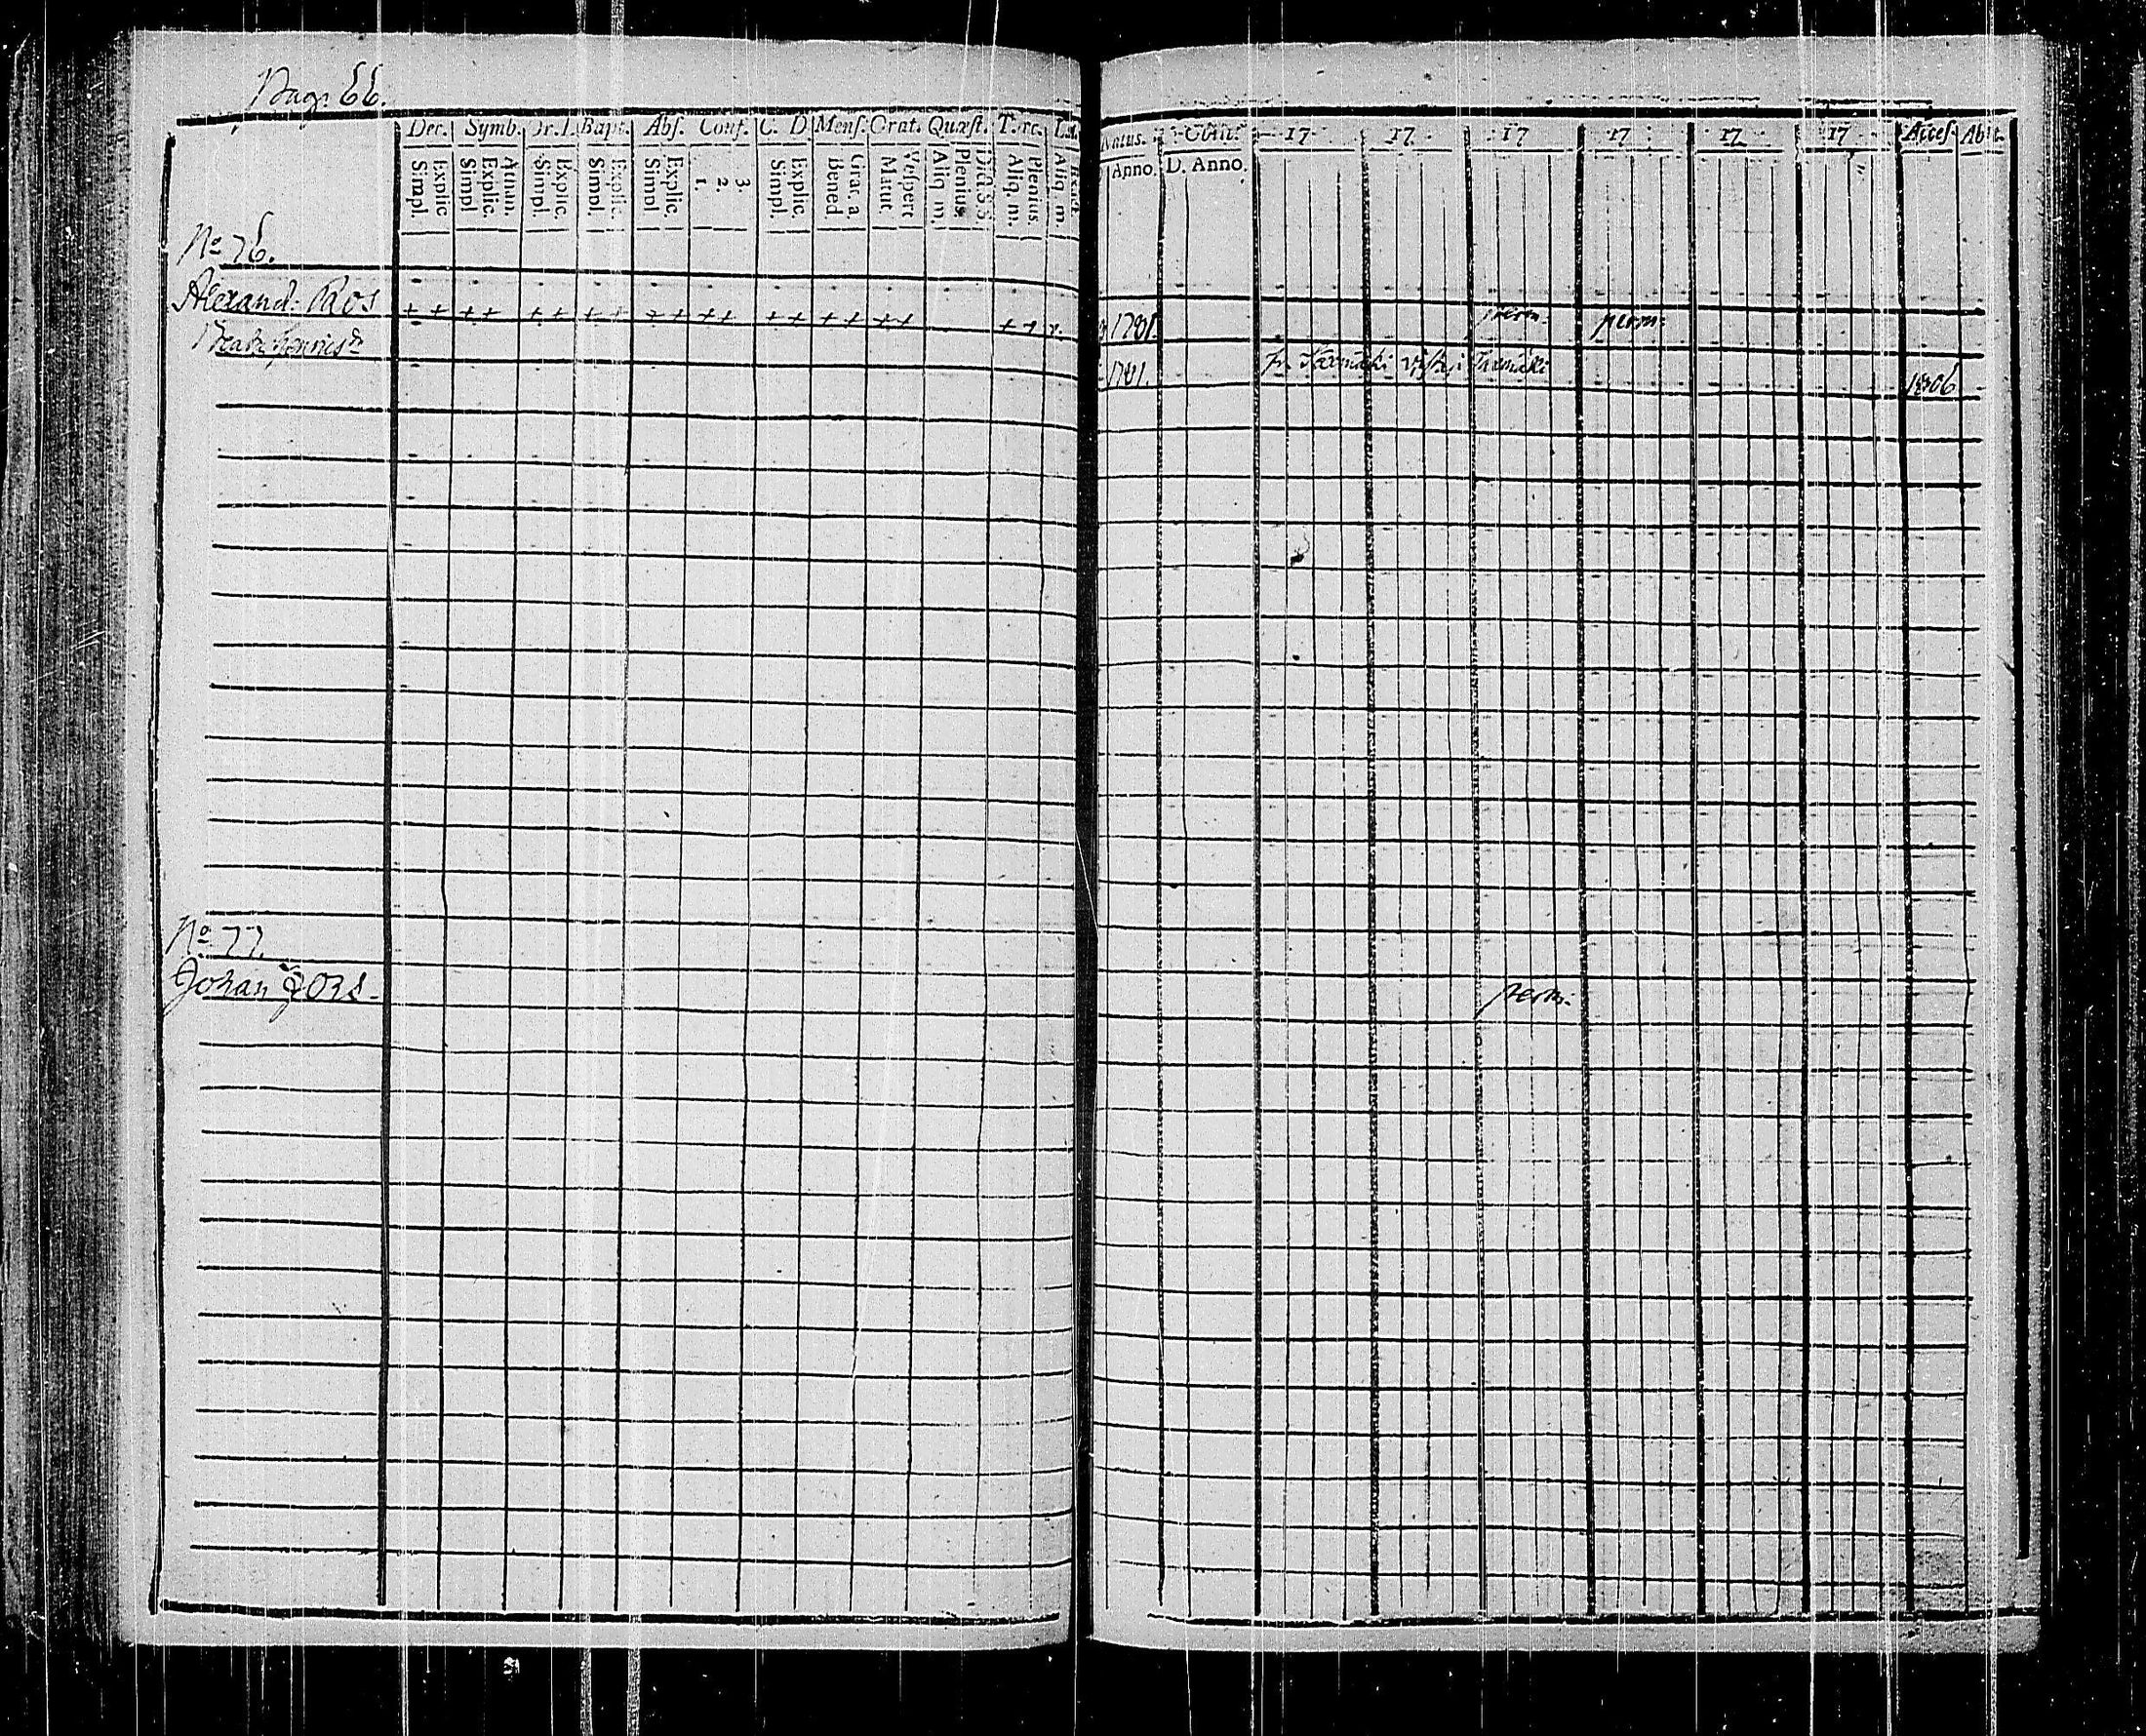 Pag. 66.
Dec. Symb. Or. D. Bapt. Abs. Conf. C. D. Mens. Orat. Quæst. T. œc.
Simpl. Explic Simpl Explic. Athan. Simpl. Explic. Simpl. Explic. Simpl Explic. 1. 2. 3 Simpl. Explic. Bened Grat. a Matut. Vespert. Aliq m. Plenius. Dict. S. S Aliq. m. Plenius. Aliq. m.
Natus. 17 17 17 17 17 17 Acces Abit.
Anno. D. Anno.
No 76.
Alexand: Ros + + + + + + + + + + + + + + + + + + + + 1781. perm:
1781. 1806
No 77.
Johan Fors perm: